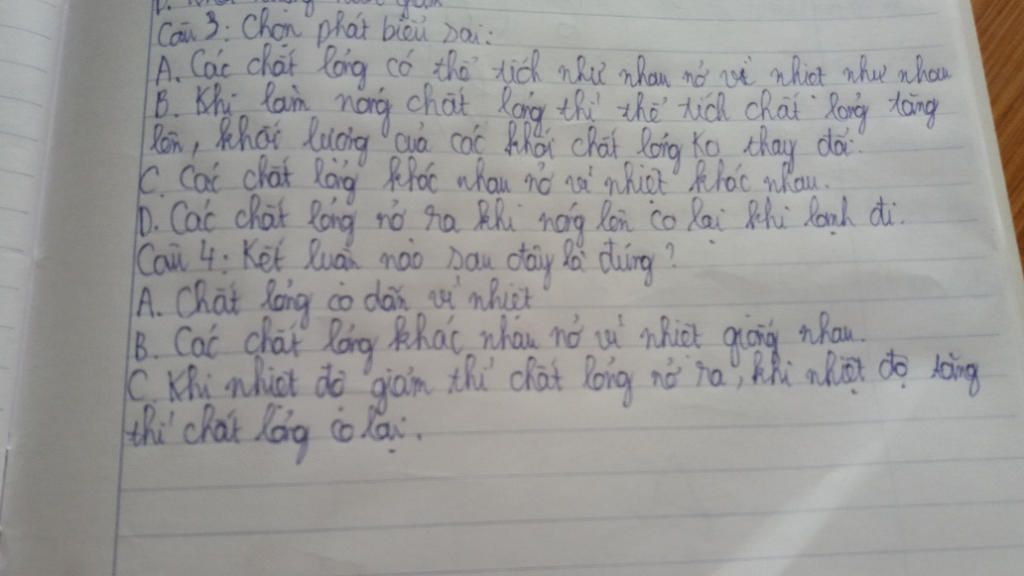 Câu 3: Chọn phát biểu sai:
A. Các chất lỏng có thể tích như nhau nở vì nhiệt như nhau
B. Khi làm nóng chất lỏng thì thể tích chất lỏng tăng
lên, khối lượng của các khối chất lỏng ko thay đổi.
C. Các chất lỏng khác nhau nở vì nhiệt khác nhau.
D. Các chất lỏng nở ra khi nóng lên co lại khi lạnh đi.
Câu 4: Kết luận nào sau đây là đúng?
A. Chất lỏng co dãn vì nhiệt
B. Các chất lỏng khác nhau nở vì nhiệt giống nhau.
C. Khi nhiệt độ giảm thì chất lỏng nở ra, khi nhiệt độ tăng
thì chất lỏng co lại.